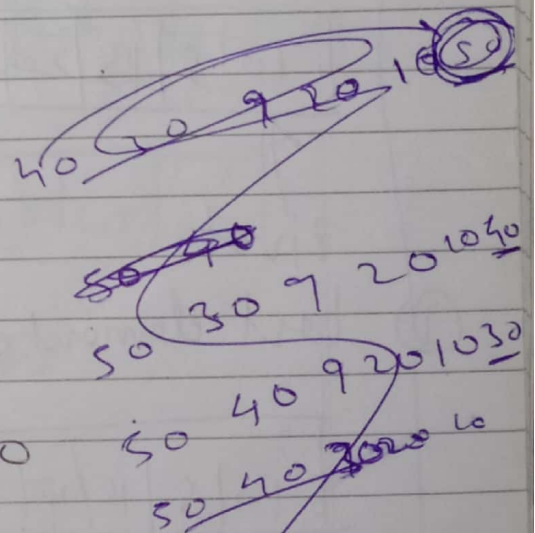 40 30 9 20 10 50
50 40
50 30 9 20 10 40
50 40 9 20 10 30
50 40 30 20 10